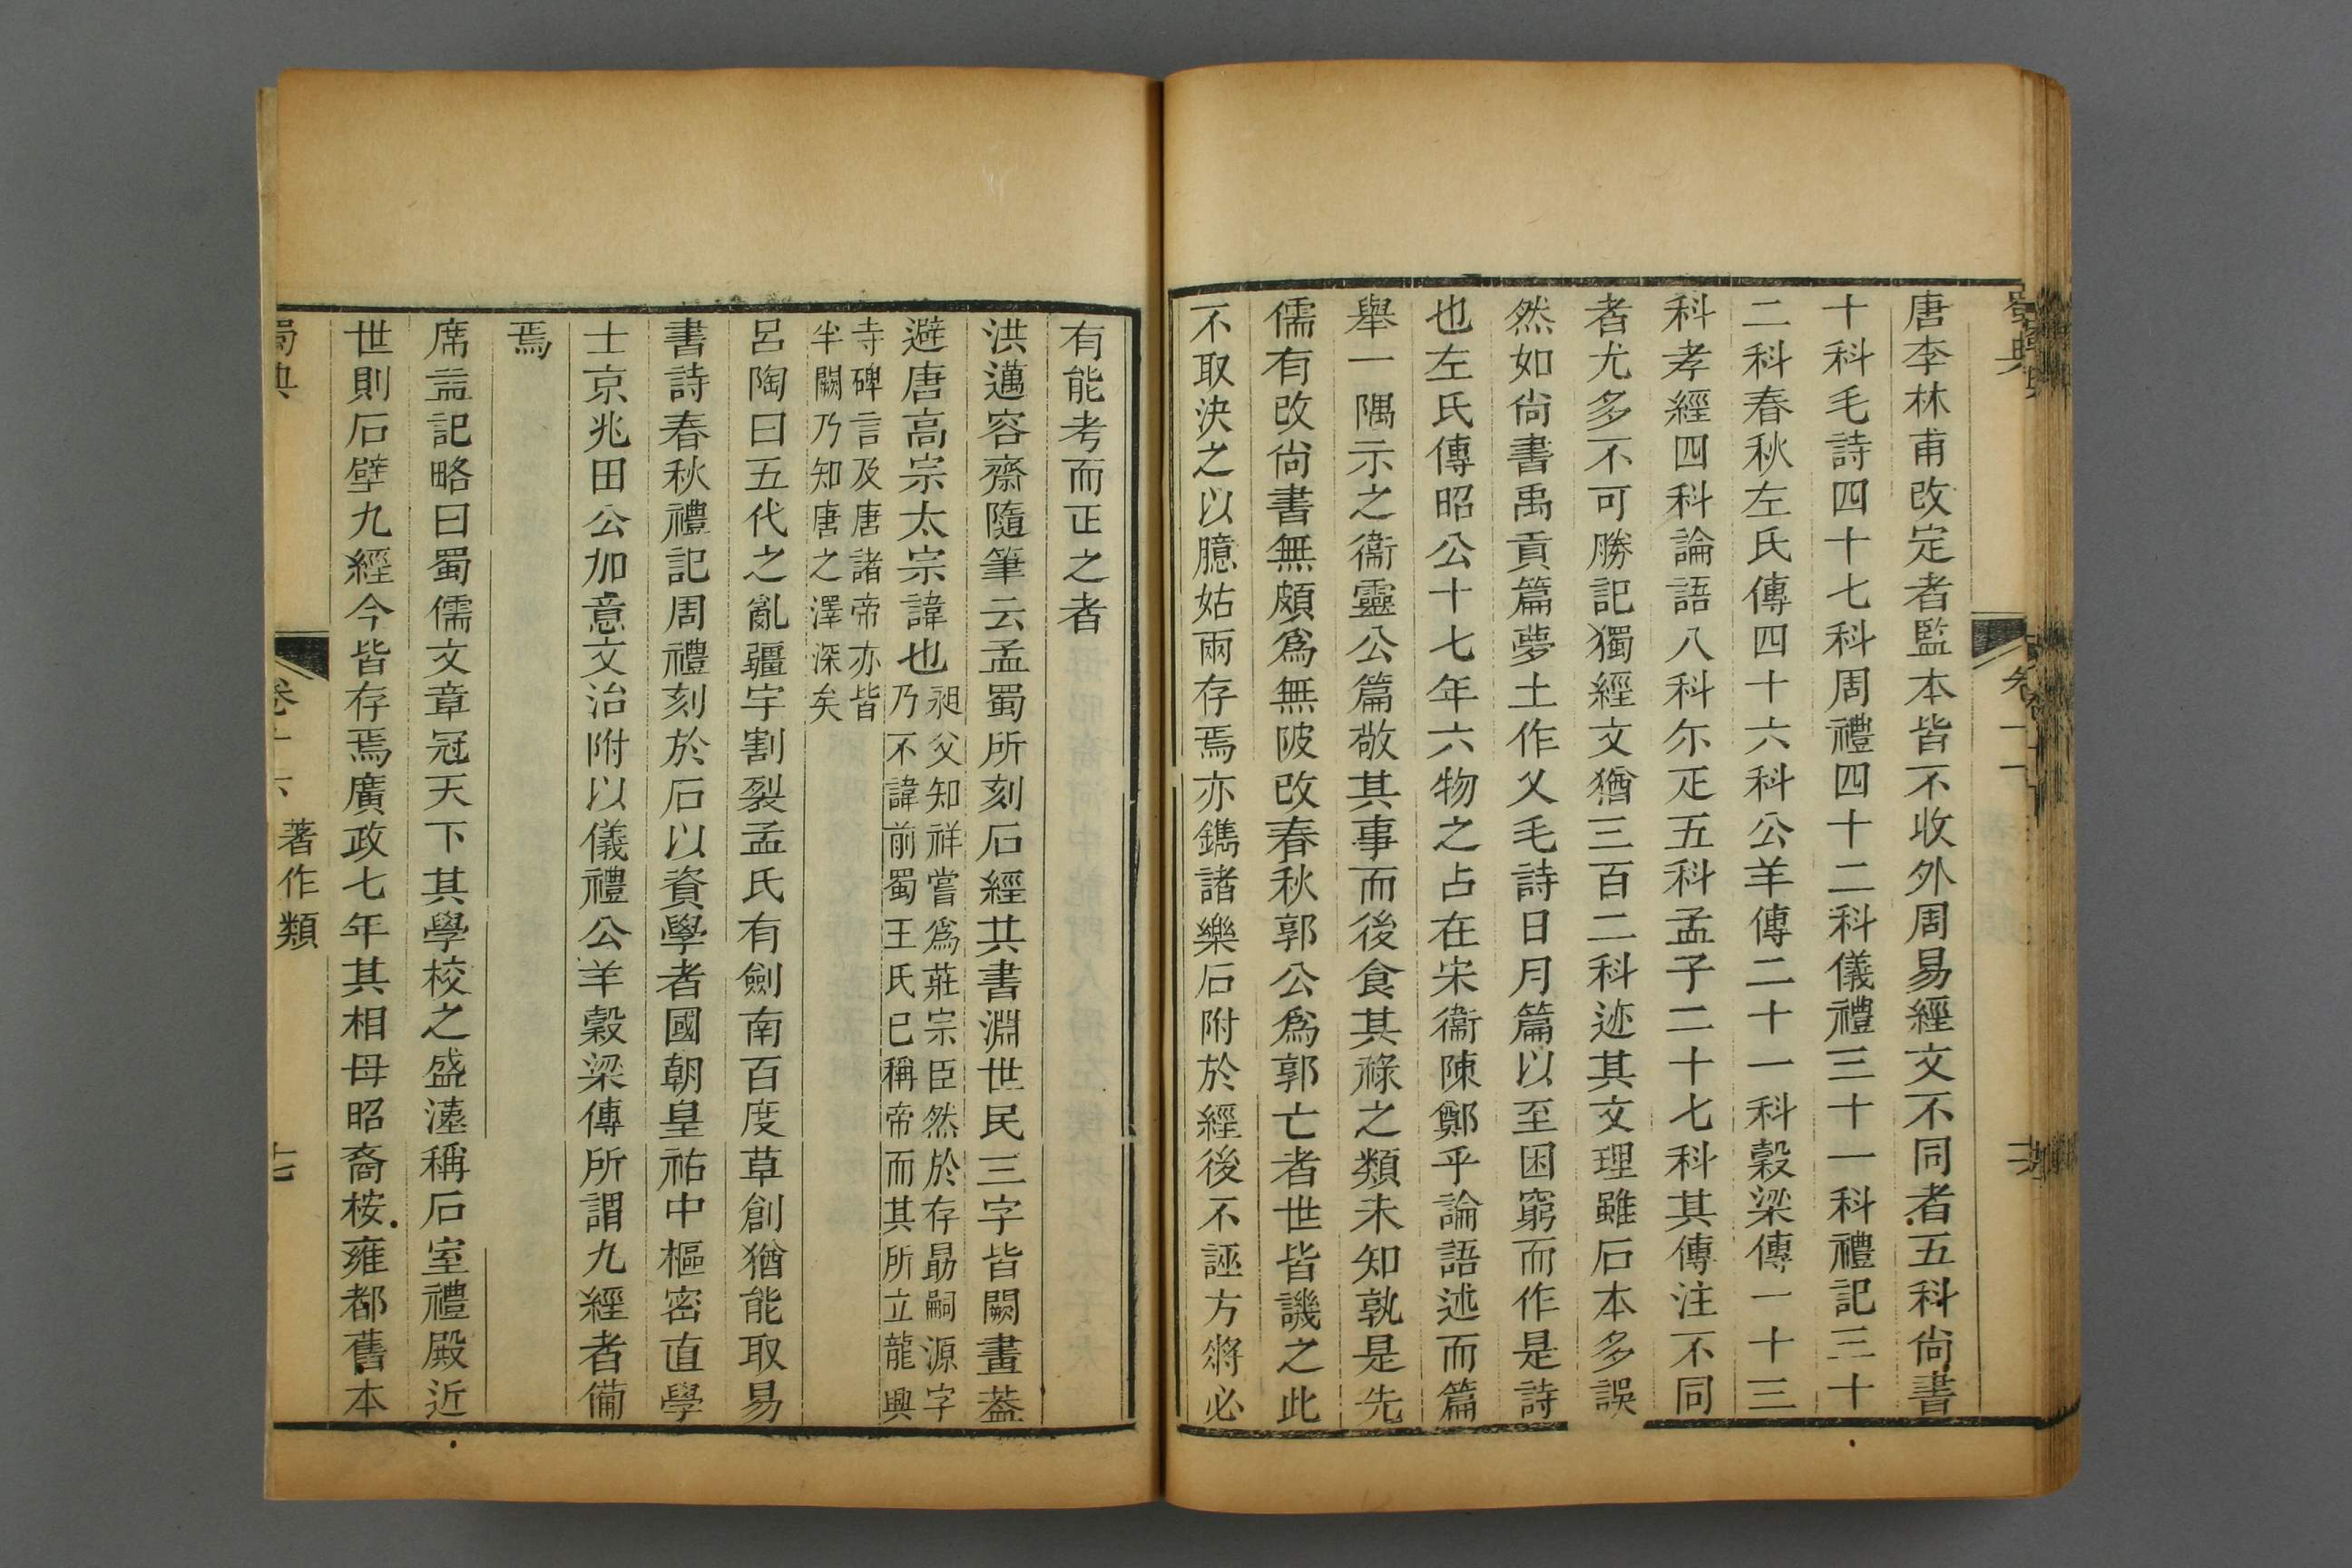 唐李林甫改定者監本皆不收外周易經文不同者五科尚書
十科毛詩四十七科周禮四十二科儀禮三十一科禮記三十
二科春秋左氏傳四十六科公羊傳二十一科穀梁傳一十三
科孝經四科論語八科尔疋五科孟子二十七科其傳注不同
者尤多不可勝記獨經文猶三百二科迹其文理雖石本多誤
然如尚書禹貢篇夢土作乂毛詩日月篇以至困窮而作是詩
也左氏傳昭公十七年六物之占在宋衞陳鄭乎論語述而篇
舉一隅示之衞靈公篇敬其事而後食其祿之類未知孰是先
儒有改尚書無頗爲無陂改春秋郭公爲郭亡者世皆譏之此
不取決之以臆姑兩存焉亦鐫諸樂石附於經後不誣方將必
有能考而正之者
洪邁容齋隨筆云孟蜀所刻石經其書淵世民三字皆闕畫葢
避唐高宗太宗諱也
昶父知祥嘗爲莊宗臣然於存勗嗣源字
乃不諱前蜀王氏已稱帝而其所立龍興
寺碑言及唐諸帝亦皆
半闕乃知唐之澤深矣
呂陶曰五代之亂疆宇割裂孟氏有劍南百度草創猶能取易
書詩春秋禮記周禮刻於石以資學者國朝皇祐中樞密直學
士京兆田公加意文治附以儀禮公羊穀梁傳所謂九經者備
焉
席益記略曰蜀儒文章冠天下其學校之盛漢稱石室禮殿近
世則石壁九經今皆存焉廣政七年其相母昭裔桉雍都舊本
蜀典
卷十六
著作類
十七